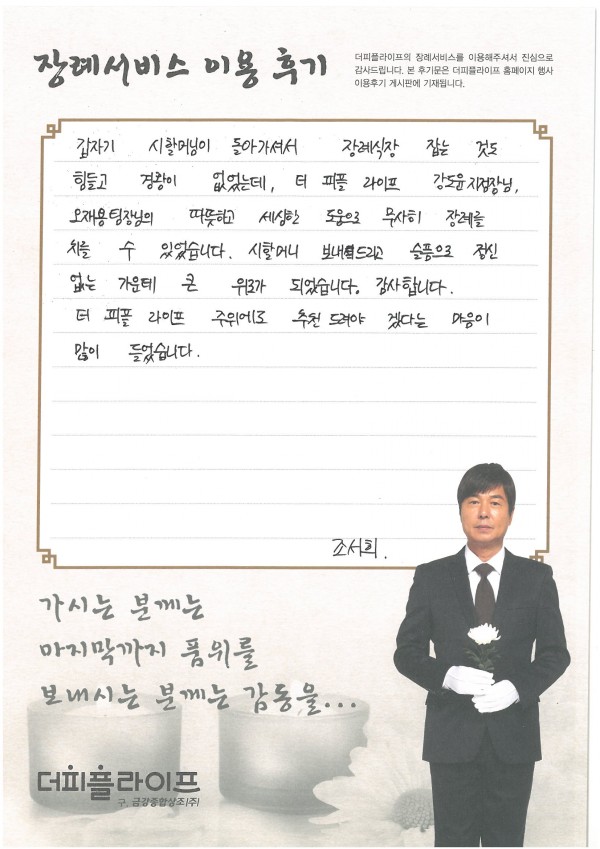 장례서비스 이용 후기
더피플라이프의 장례서비스를 이용해주셔서 진심으로
감사드립니다. 본 후기문은 더피플라이프 홈페이지 행사
이용후기 게시판에 기재됩니다.
갑자기 시할머님이 돌아가셔서 장례식장 잡는 것도
힘들고 경황이 없었는데, 더 피플 라이프 강도윤지점장님,
오재용팀장님의 따뜻하고 세심한 도움으로 무사히 장례를
치를 수 있었습니다. 시할머니 보내드리고 슬픔으로 정신
없는 가운데 큰 위로가 되었습니다. 감사합니다.
더 피플 라이프 주위에도 추천 드려야 겠다는 마음이
많이 들었습니다.
조서희.
가시는 분께는
마지막까지 품위를
보내시는 분께는 감동을...
더피플라이프
구. 금강종합상조(주)